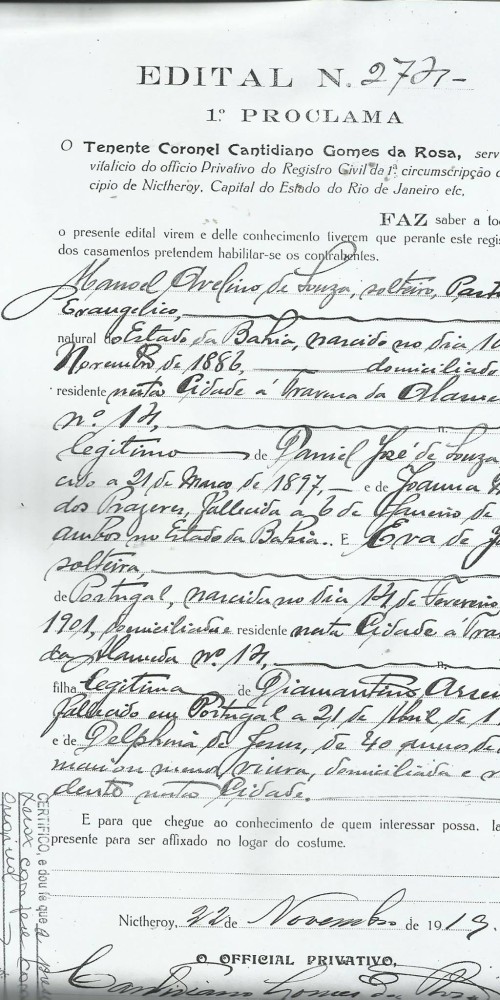 EDITAL N. 27
1.º PROCLAMA
O Tenente Coronel Cantidiano Gomes da Rosa, serv
vitalicio do officio Privativo do Registro Civil da 1ª circumscripção
cipio de Nictheroy, Capital do Estado do Rio de Janeiro etc,
FAZ saber a to
o presente edital virem e delle conhecimento tiverem que perante este regis
dos casamentos pretendem habilitar-se os contrahentes.
Manoel Avelino de Souza, solteiro, Past
Evangelico,
natural do Estado da Bahia, nascido no dia 10
Novembro de 1886, domiciliado
residente nesta Cidade á Travessa da Alame
nº 17, n.
legitimo de Daniel José de Souza
cido a 21 de Março de 1897, e de Joanna
dos Prazeres, fallecida a 6 de Janeiro de
ambos no Estado da Bahia. E Eva de
solteira,
de Portugal, nascida no dia 14 de Fevereiro
1901, domiciliada e residente nesta Cidade á Tra
da Alameda nº 17, n.
filha legitima de Diamantino
fallecido em Portugal a 21 de Abril de 1
e de Delphina de Jesus, de 40 annos de
mais ou menos, viuva, domiciliada e r
dente nesta Cidade.
E para que chegue ao conhecimento de quem interessar possa, la
presente para ser affixado no logar do costume.
Nictheroy, 22 de Novembro de 1919.
O OFFICIAL PRIVATIVO,
Cantidiano Gomes da Rosa
CERTIFICO, e dou fé que a